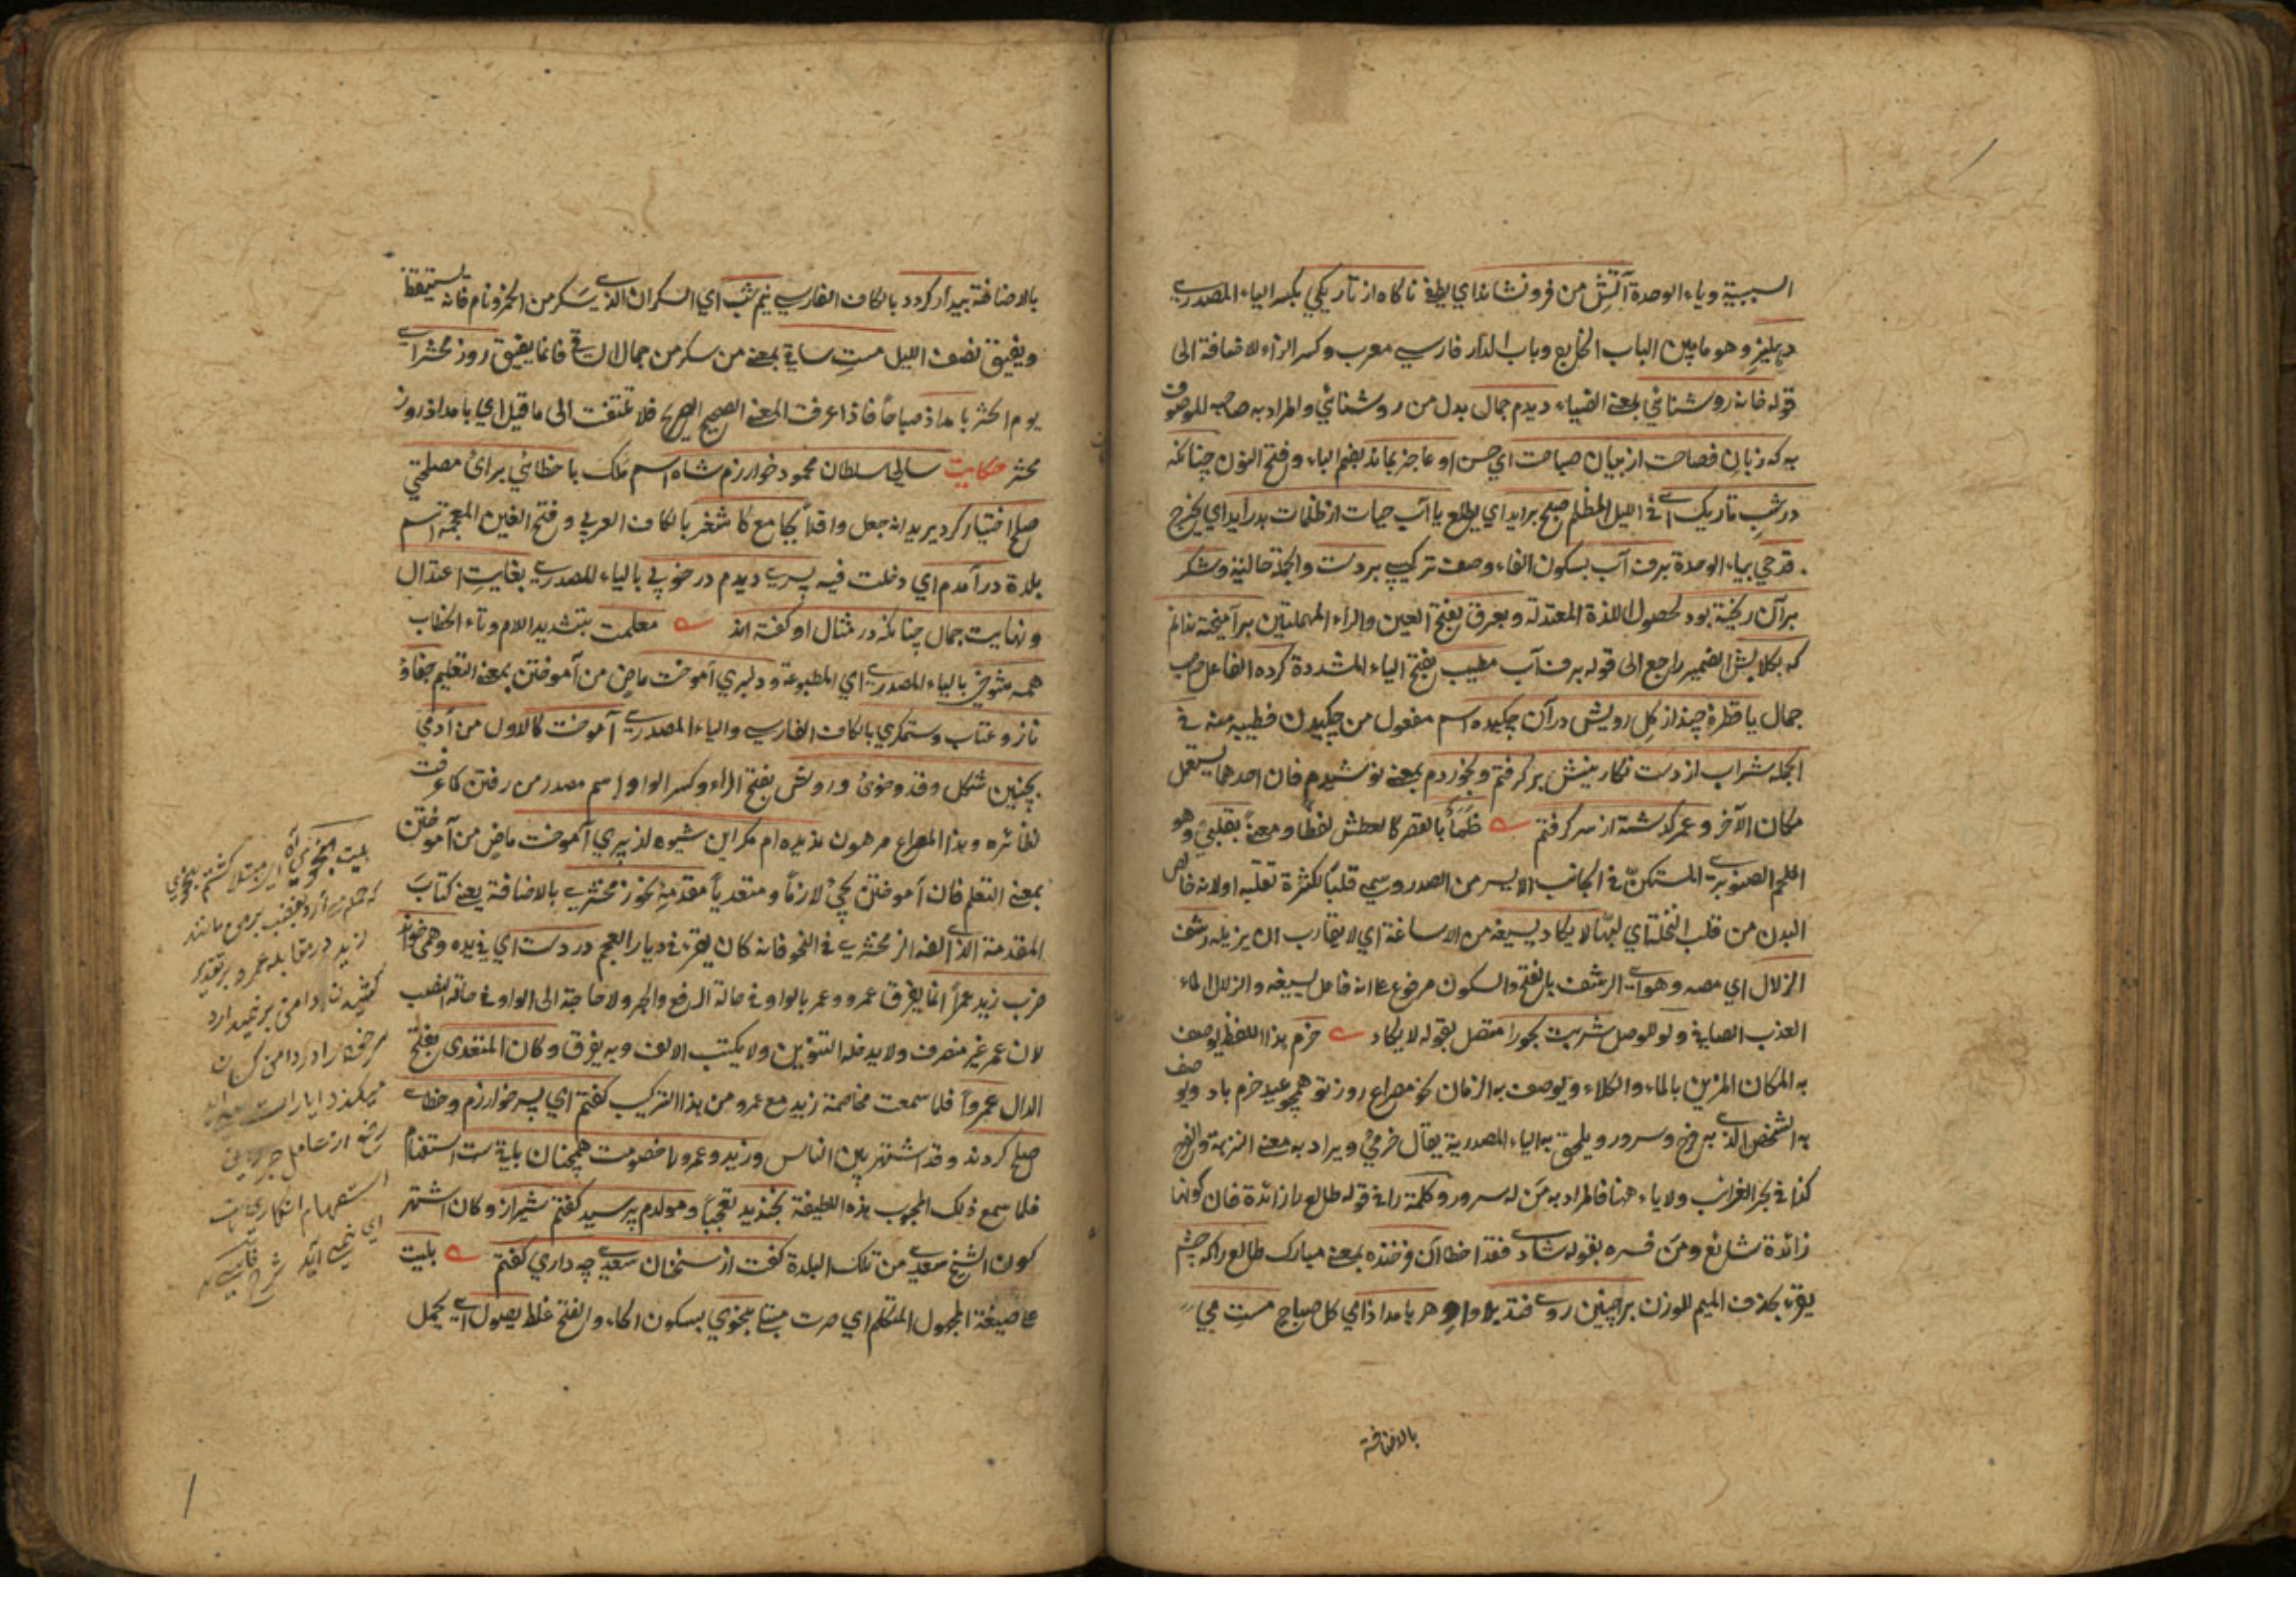 السببية وياء الوحدة آتش من فرو نشاند اي يطفئ ناكاه از تاريكي بكسر الياء المصدرى
دهليز وهو ما بين الباب الخارج وباب الدار فارسي معرب وكسر الزاء لاضافة الى
قوله خانه روشنائي بمعنى الضياء ديدم جمال بدل من روشنائي والمراد به صاحبه الموصوف
به كه زبان فصاحت از بيان صباحت اي حسن او عاجز بماند بضم الباء وفتح النون چنانكه
در شب تاريك اى فى الليل المظلم صبح برايد اي يطلع يا آب حيات از ظلمات بدرايد اي يخرج
قدحي بياء الوحدة برف آب بسكون الفاء وصف تركيبي بر دست والجملة حالية وشكر
بر آن ريخته بود لحصول اللذة المعتدلة وبعرق بفتح العين والراء المهملتين بر آميخته ندانم
كه بكلابش الضمير راجع الى قوله برف آب مطيب بفتح الياء المشددة كرده الفاعل صاحب
جمال يا قطرة چند از كل رويش در آن چكيده اسم مفعول من چكيدن فطيبه منه فى
الجمله شراب از دست نكارينش بر كرفتم وبخوردم بمعنى نوشيدم فان احدهما يستعمل
مكان الآخر وعمر كذشته از سر كرفتم ظمأ بالقصر كالعطش لفظا ومعنى بقلبي وهو
اللحم الصنوبرى المستكن فى الجانب الايسر من الصدر وسمي قلبا لكثرة تقلبه او لانه خالص
البدن من قلب النخلة اي لبها لا يكاد يسيغه من الاساغة اي لا يقارب ان يزيله رشف
الزلال اي مصه وهو اى الرشف بالفتح والسكون مرفوع على انه فاعل يسيغه والزلال الماء
العذب الصافي ولو للوصل شربت بحورا متصل بقوله لا يكاد خرم هذا اللفظ يوصف
به المكان المزين بالماء والكلاء ويوصف به الزمان نحو مصراع روز تو همچو عيد خرم باد ويوصف
به الشخص الذى به فرح وسرور ويلحق به الياء المصدرية يقال خرمي ويراد به معنى النزهة والفرح
كذا فى بحر الغرائب ولا ياء ههنا فالمراد به من له سرور وكلمة را فى قوله طالع را زائدة فان كونها
زائدة شائع ومن فسره بقوله شادى فقد اخطأ آن فرخنده بمعنى مبارك طالع را كه چشم
يقرء بحذف الميم للوزن بر چنين روى فتد بلا واو هر بامداد اي كل صباح مست مي
بالاضافة
بالاضافة بيدار كردد بالكاف الفارسي نيم شب اي السكران الذى يسكر من الخمر ونام فانه يستيقظ
ويفيق نصف الليل مست ساقي بمعنى من سكر من جمال الساقى فانما يفيق روز محشر اى
يوم الحشر بامداد صباحا فاذا عرفت المعنى الصحيح الصريح فلا تلتفت الى ما قيل اي بامداد روز
محشر حكايت سالى سلطان محمود خوارزم شاه اسم ملك با خطائي براى مصلحتي
صلح اختيار كرد يريد انه جعل واقعا بجامع كاشغر بالكاف العربي وفتح الغين المعجمة اسم
بلدة در آمدم اي دخلت فيه پسرى ديدم در خوبي بالياء المصدرى بغايت اعتدال
ونهايت جمال چنانكه در مثال او كفته اند معلمت بتشديد اللام وتاء الخطاب
همه شوخي بالياء المصدرى اي المطبوعة ودلبري آموخت ماض من آموختن بمعنى التعليم جفا و
ناز وعتاب وستمكري بالكاف الفارسى والياء المصدرى آموخت كالاول من آدمي
بچنين شكل وقد وخوى وروش بفتح الراء وكسر الواو اسم مصدر من رفتن كما عرفت
نظائره وهذا المصراع مرهون نديده ام مكر اين شيوه از پري آموخت ماض من آموختن
بمعنى التعلم فان آموختن يجئ لازما ومتعديا مقدمه نحو زمخشرى بالاضافة يعنى كتاب
المقدمة الذى الفه الزمخشرى فى النحو فانه كان يقرء فى ديار العجم در دست اي فى يده وهمى خواند
ضرب زيد عمرا انما يفرق عمرو وعمر بالواو فى حالة الرفع والجر ولا حاجة الى الواو فى حالة النصب
لان عمر غير منصرف ولا يدخله التنوين ولا يكتب الالف وبه يفرق وكان المتعدى بفتح
الدال عمروا فلما سمعت مخاصمة زيد مع عمرو من هذا التركيب كفتم اي پسر خوارزم وخطاى
صلح كردند وقد اشتهر بين الناس وزيد وعمرو را خصومت همچنان باقيست استفهام
فلما سمع ذلك المحبوب هذه اللطيفة بخنديد تعجبا ومولدم پرسيد كفتم شيراز وكان اشتهر
كون الشيخ سعدى من تلك البلدة كفت از سخنان سعدى چه داري كفتم بليت
على صيغة المجهول المتكلم اي صرت مبتلا بنحوي بسكون الحاء والفتح غلط يصول اى يحمل
بليت بنحوي اى مبتلا كشتم بنحوي
زيد در مقابله عمرو
استفهام انكاري